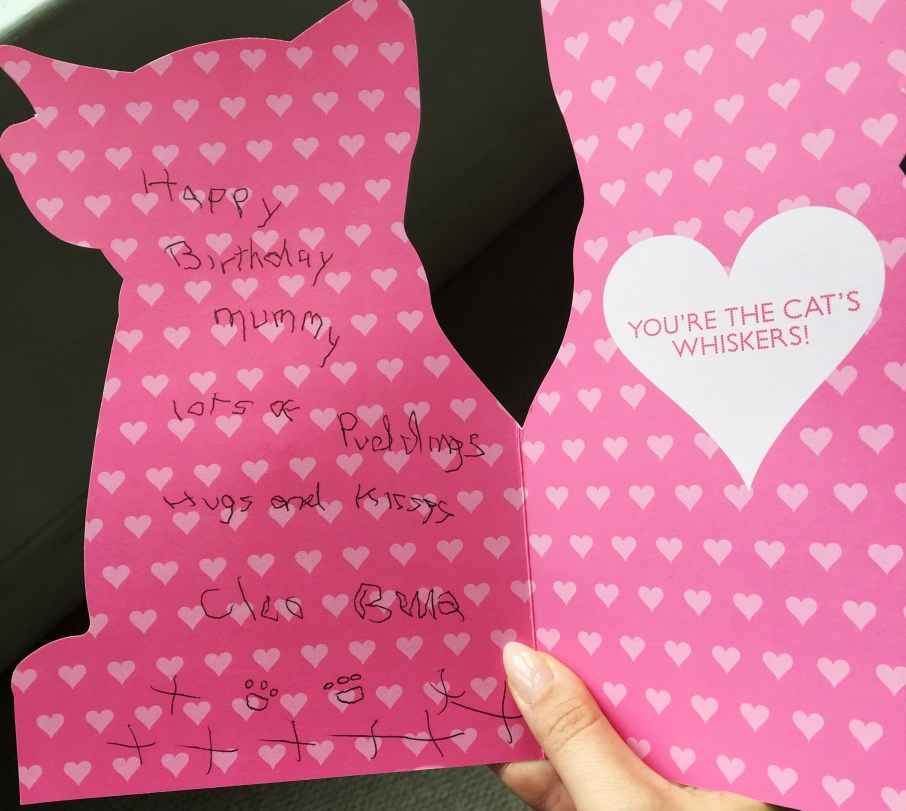 Happy
Birthday
mummy
lots of
Puddings
Hugs and Kisses
Cleo Bella
YOU'RE THE CAT'S
WHISKERS!